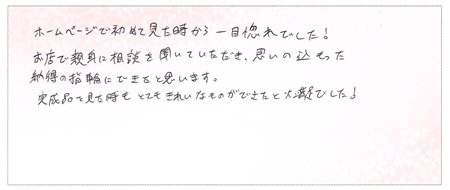 ホームページで初めて見た時から一目惚れでした!
お店で親身に相談を聞いていただき、思いの込もった
納得の指輪にできたと思います。
完成品を見た時も とてもきれいなものができたと大満足でした!